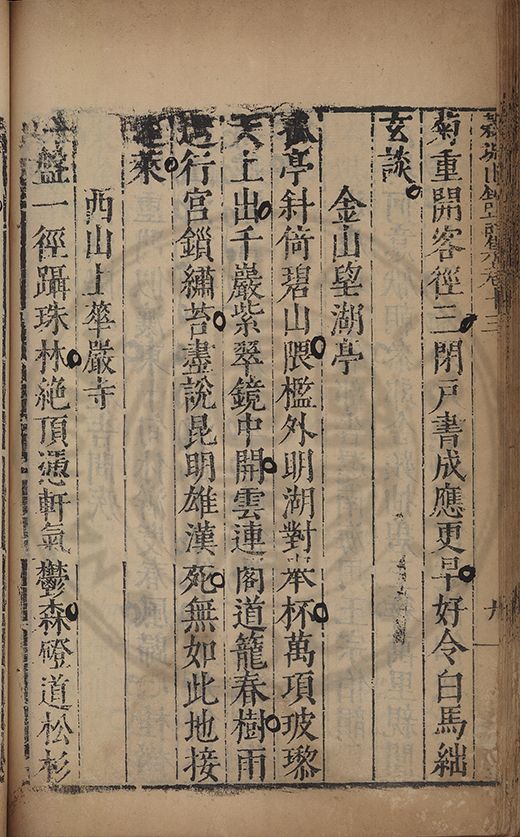 菊重開客徑三閉戸書成應更早好令白馬紬
玄談
金山望湖亭
亭斜倚碧山隈檻外明湖對杯萬項玻瓈
天上出千巖紫翠鏡中開雲連閣道籠春樹雨
行宮鎖繡苔盡說昆明雄漢死無如此地接
萊
西山上華嚴寺
盤一徑躡珠林絶頂憑軒氣鬱森磴道松杉